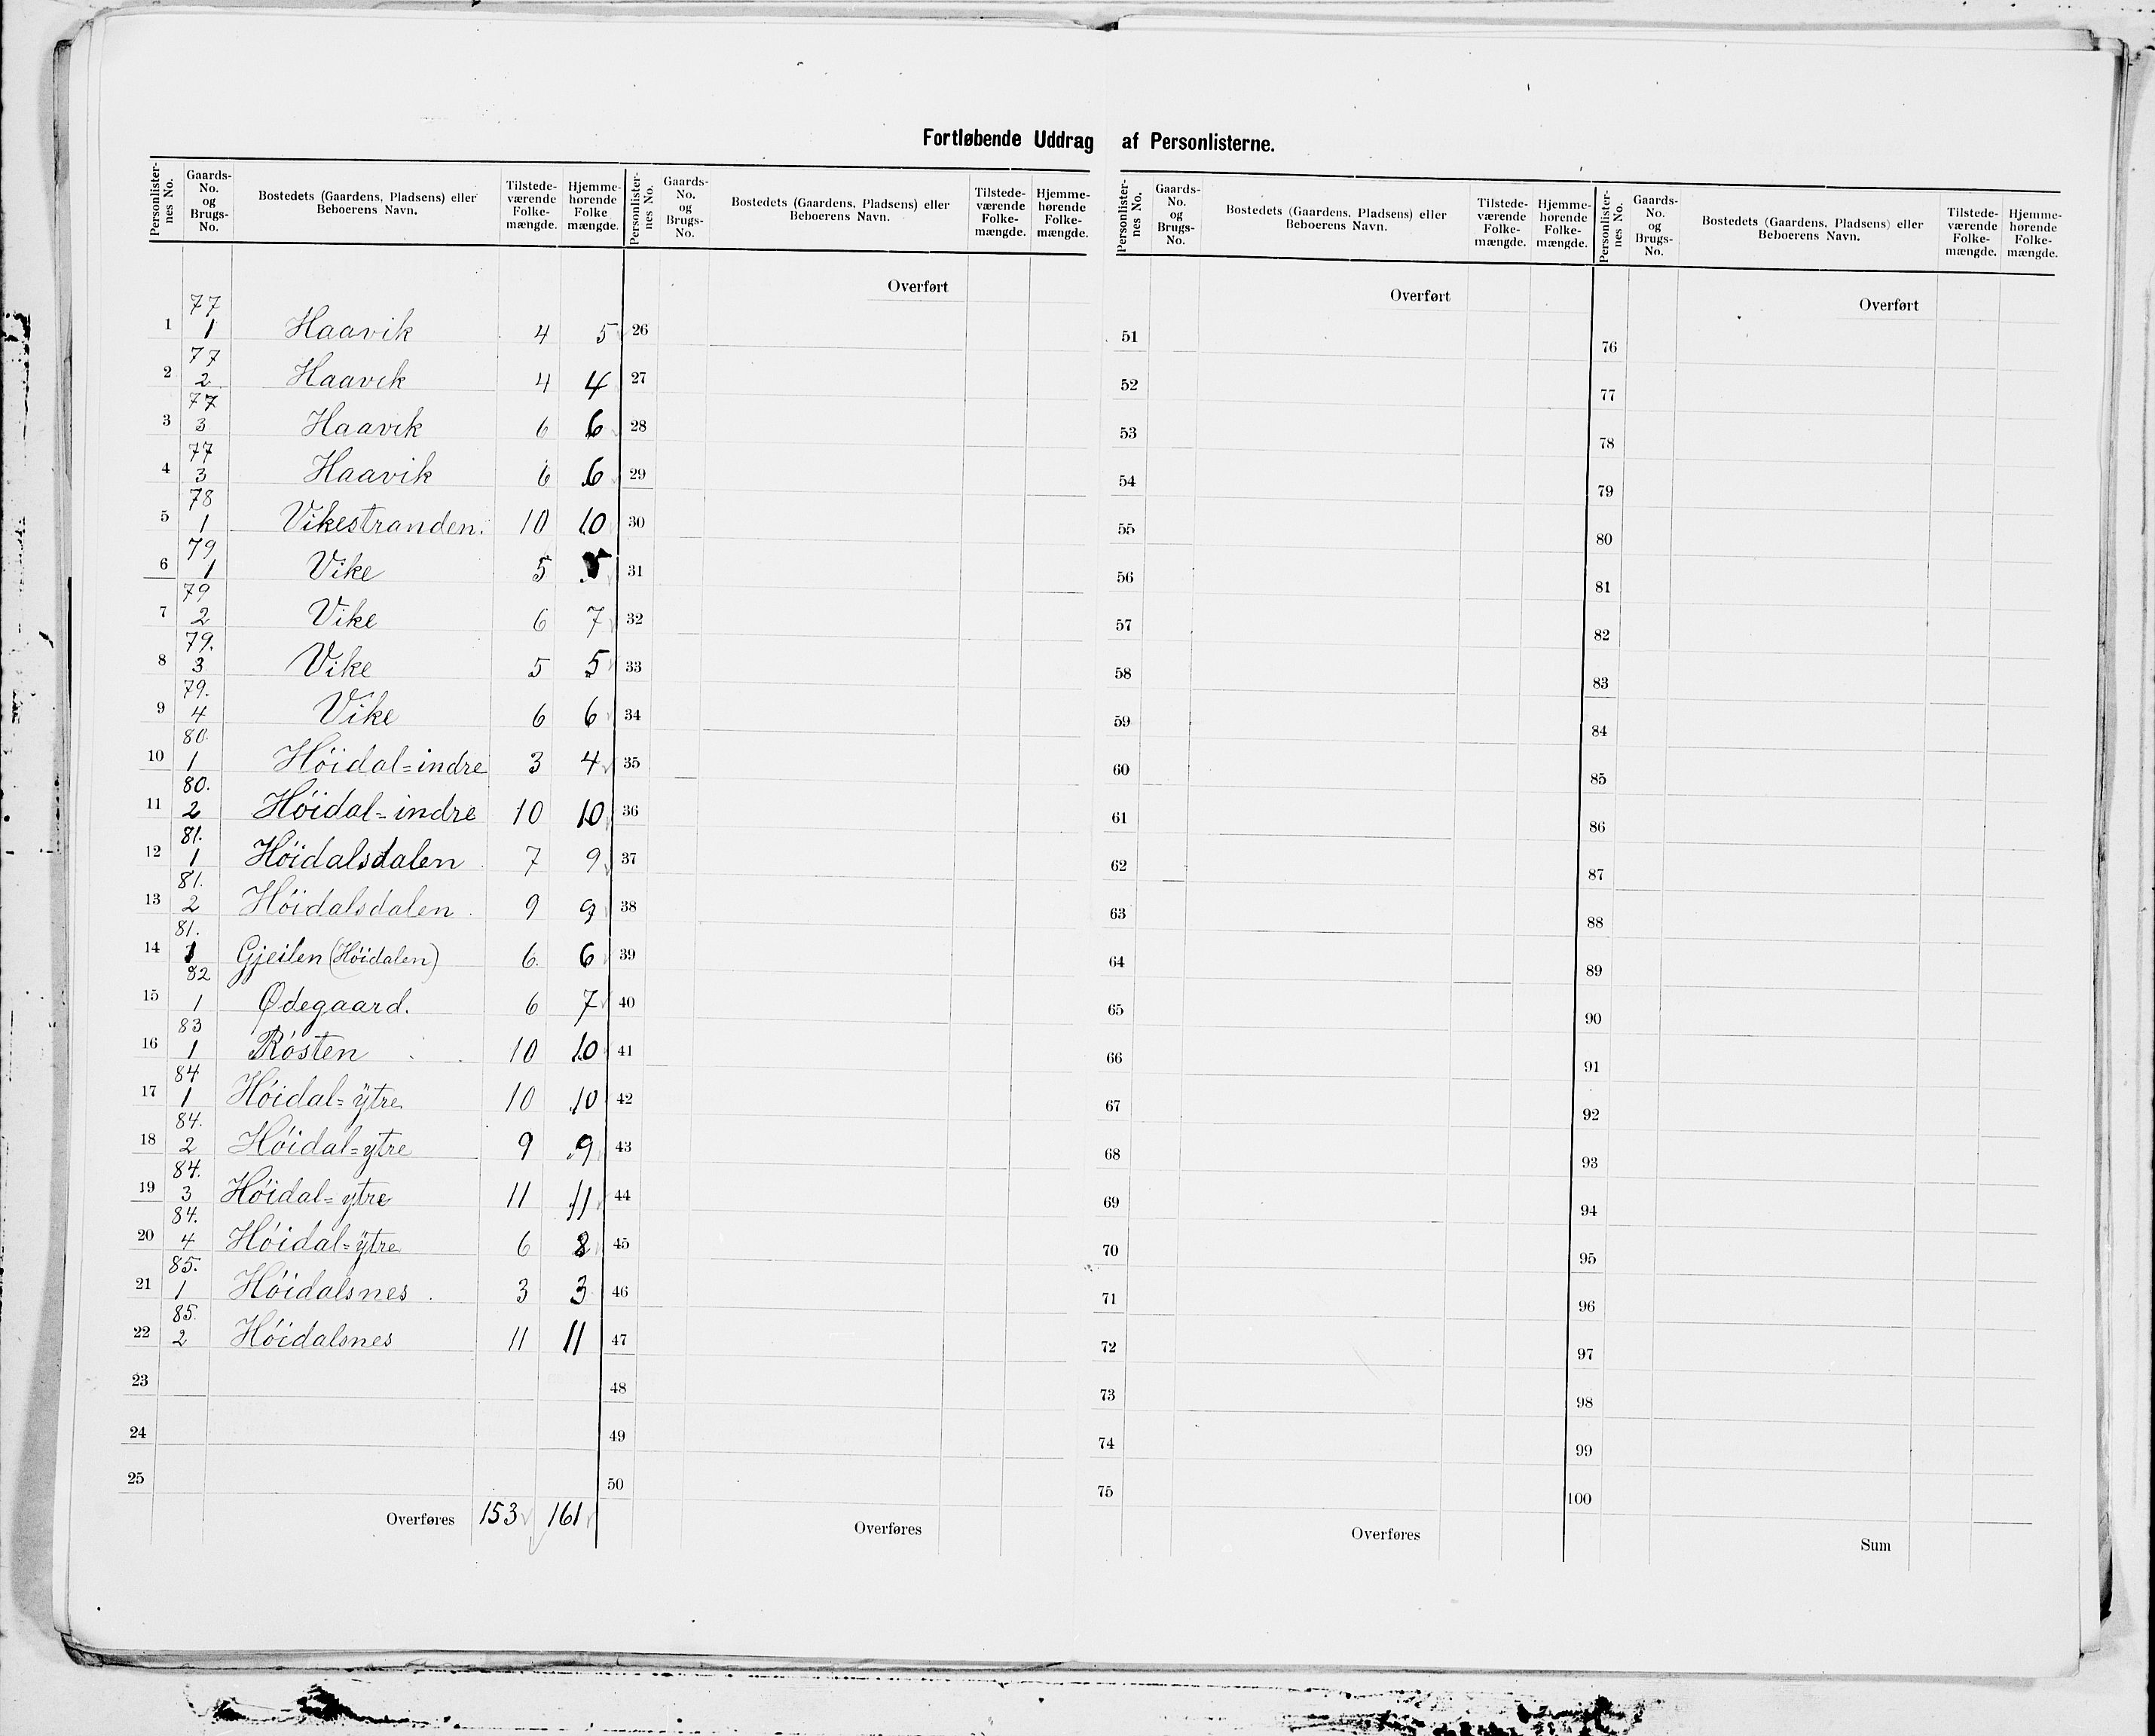 Fortløbende Uddrag af Personlisterne.
Personlister-nes No. | Gaards-No. og Brugs-No. | Bostedets (Gaardens, Pladsens) eller Beboerens Navn. | Tilstede-værende Folke-mængde. | Hjemme-hørende Folke mængde.
1 | 77 1 | Haavik | 4 | 5
2 | 77 2 | Haavik | 4 | 4
3 | 77 3 | Haavik | 6 | 6
4 | 77 3 | Haavik | 6 | 6
5 | 78 1 | Vikestranden. | 10 | 10
6 | 79 1 | Vike | 5 | 5
7 | 79 2 | Vike | 6 | 7
8 | 79. 3 | Vike | 5 | 5
9 | 79. 4 | Vike | 6 | 6
10 | 80. 1 | Höidal=indre | 3 | 4
11 | 80. 2 | Höidal=indre | 10 | 10
12 | 81. 1 | Höidalsdalen | 7 | 9
13 | 81. 2 | Höidalsdalen | 9 | 9
14 | 81. 1 | Gjeilen (Höidalen) | 6. | 6
15 | 82 1 | Ødegaard. | 6 | 7
16 | 83 1 | Rösten | 10 | 10
17 | 84 1 | Höidal=ÿtre | 10 | 10
18 | 84. 2 | Höidal=ytre | 9 | 9
19 | 84. 3 | Höidal=ytre | 11 | 11
20 | 84. 4 | Höidal=ÿtre | 6 | 8
21 | 85. 1 | Höidalsnes | 3 | 3
22 | 85. 2 | Höidalsnes | 11 | 11
23
24
25
Overføres | 153 | 161
Personlister-nes No. | Gaards-No. og Brugs-No. | Bostedets (Gaardens, Pladsens) eller Beboerens Navn. | Tilstede-værende Folke-mængde. | Hjemme-hørende Folke-mængde.
Overført
26
27
28
29
30
31
32
33
34
35
36
37
38
39
40
41
42
43
44
45
46
47
48
49
50
Overføres
Personlister-nes No. | Gaards-No. og Brugs-No. | Bostedets (Gaardens, Pladsens) eller Beboerens Navn. | Tilstede-værende Folke-mængde. | Hjemme-hørende Folke-mængde.
Overført
51
52
53
54
55
56
57
58
59
60
61
62
63
64
65
66
67
68
69
70
71
72
73
74
75
Overføres
Personlister-nes No. | Gaards-No. og Brugs-No. | Bostedets (Gaardens, Pladsens) eller Beboerens Navn. | Tilstede-værende Folke-mængde. | Hjemme-hørende Folke-mængde.
Overført
76
77
78
79
80
81
82
83
84
85
86
87
88
89
90
91
92
93
94
95
96
97
98
99
100
Sum